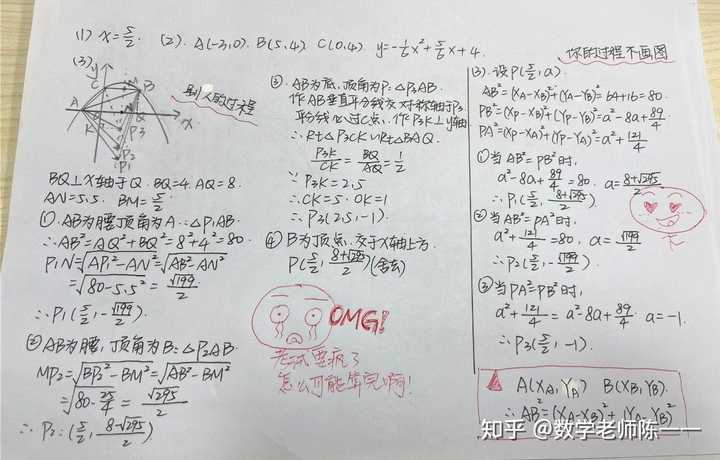 (1) x=5/2. (2). A(-3,0). B(5,4). C(0,4). y=-1/6x²+5/6x+4.
你的过程不画图
(3)
y
C
B
A
K
N
Q
x
M
P3
P2
P1
别人的过程
BQ⊥X轴于Q. BQ=4. AQ=8.
AN=5.5. BM=5/2.
①. AB为腰顶角为A:△P1AB.
∴AB²=AQ²+BQ²=8²+4²=80.
P1N=√(AP1²-AN²)=√(AB²-AN²)
=√(80-5.5²)=√199/2.
∴P1(5/2,-√199/2).
②AB为腰,顶角为B:△P2AB.
MP2=√(BP2²-BM²)=√(AB²-BM²)
=√(80-25/4)=√295/2
∴P2:(5/2,(8-√295)/2)
③. AB为底,顶角为P:△P3AB.
作AB垂直平分线交对称轴于P3.
平分线必过C点,作P3K⊥y轴.
∴Rt△P3CK∽Rt△BAQ.
P3K/CK=BQ/AQ=1/2
∵P3K=2.5
∴CK=5. OK=1
∴P3(2.5,-1).
④B为顶点.交于x轴上方.
P(5/2,(8+√295)/2)(舍去)
OMG!
考试要疯了
怎么可能算完啊!
(3). 设P(5/2,a).
AB²=(XA-XB)²+(YA-YB)²=64+16=80.
PB²=(XP-XB)²+(YP-YB)²=a²-8a+89/4
PA²=(XP-XA)²+(YP-YA)²=a²+121/4
①当AB²=PB²时,
a²-8a+89/4=80. a=(8+√295)/2
∴P1(5/2,(8±√295)/2)
②当AB²=PA²时,
a²+121/4=80, a=√199/2
∴P2(5/2,-√199/2).
③当PA²=PB²时,
a²+121/4=a²-8a+89/4 a=-1.
∴P3(5/2,-1).
▲ A(XA,YA) B(XB,YB).
∴AB²=(XA-XB)²+(YA-YB)²
知乎 @数学老师陈一一